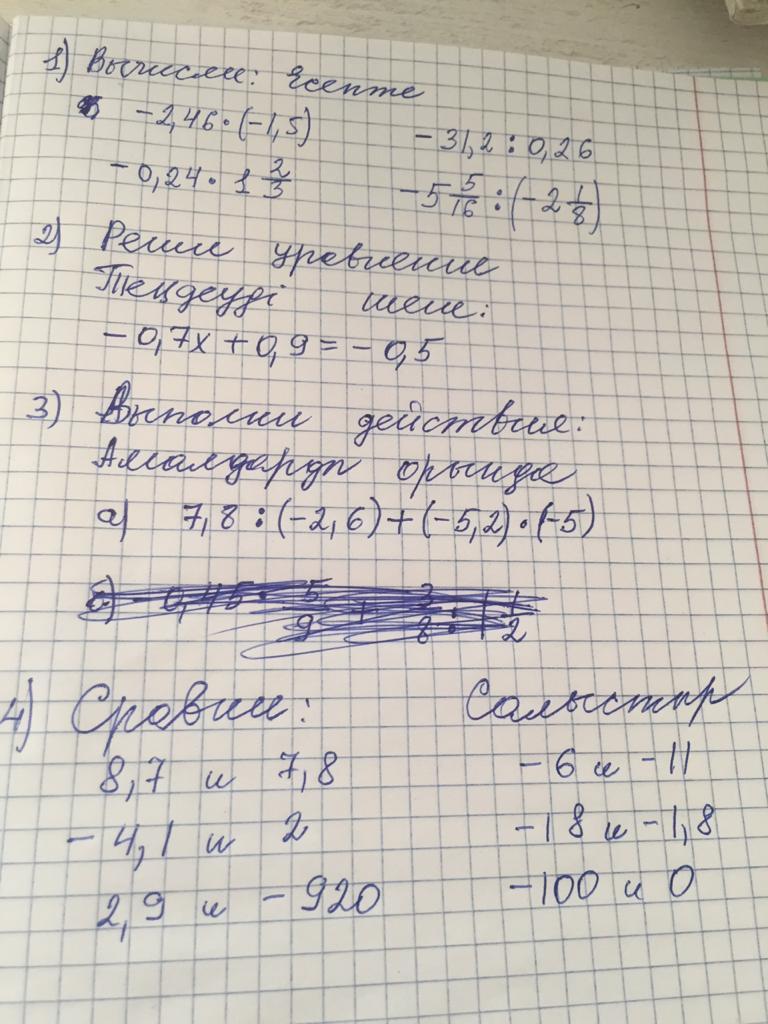 1) Вычисли: Есепте
-2,46·(-1,5) -31,2:0,26
-0,24·1 2/3 -5 5/16:(-2 1/8)
2) Реши уравнение
Теңдеуді шеш:
-0,7x+0,9=-0,5
3) Выполни действия:
Амалдарды орында
а) 7,8:(-2,6)+(-5,2)·(-5)
4) Сравни: Салыстыр
8,7 и 7,8 -6 и -11
-4,1 и 2 -18 и -1,8
2,9 и -920 -100 и 0